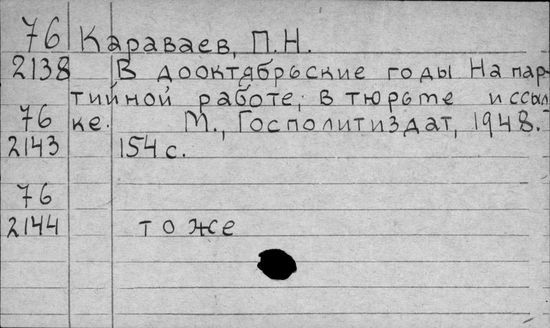 76 Караваев, П.Н.
2138 В дооктябрьские годы На пар-
тийной работе, в тюрьме и ссыл
76 ке. М., Госполитиздат, 1948.-
2143 154 с.
76
2144 то же